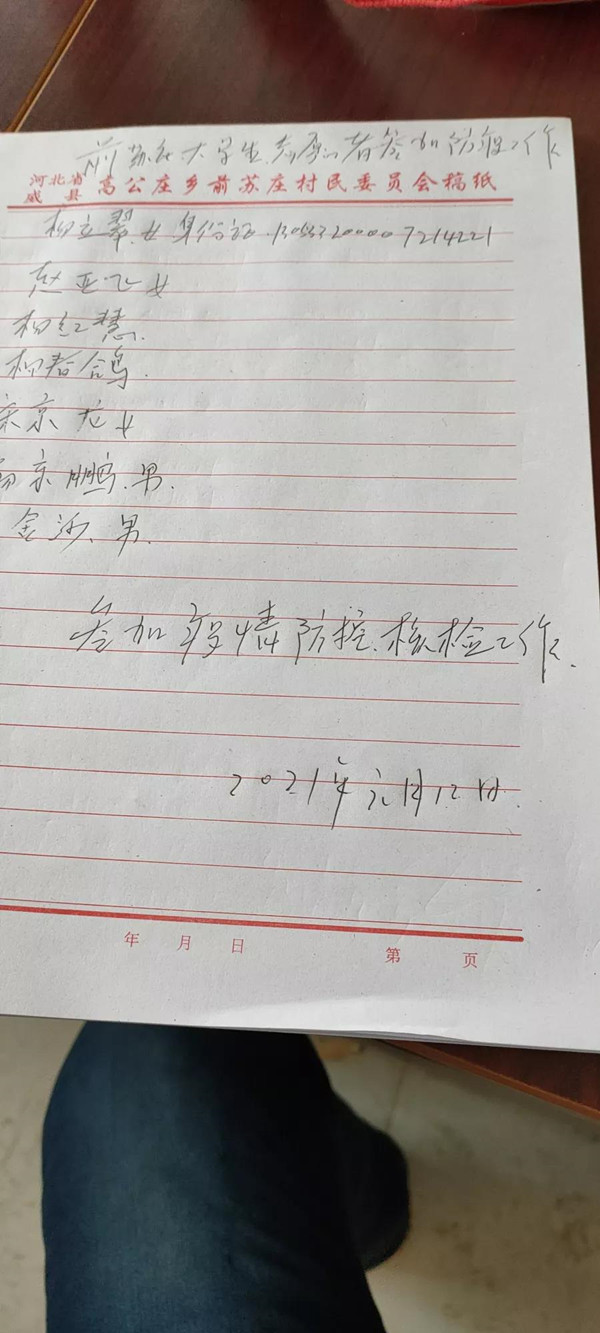 前苏庄大学生志愿者参加防疫工作
河北省
威 县
高公庄乡前苏庄村民委员会稿纸
女 身份证
赵亚飞 女
柳红慧.
柳春鸽.
京 女
京鹏.男.
金沙.男.
参加疫情防控.核检工作.
2021年元月12日.
年 月 日
第 页